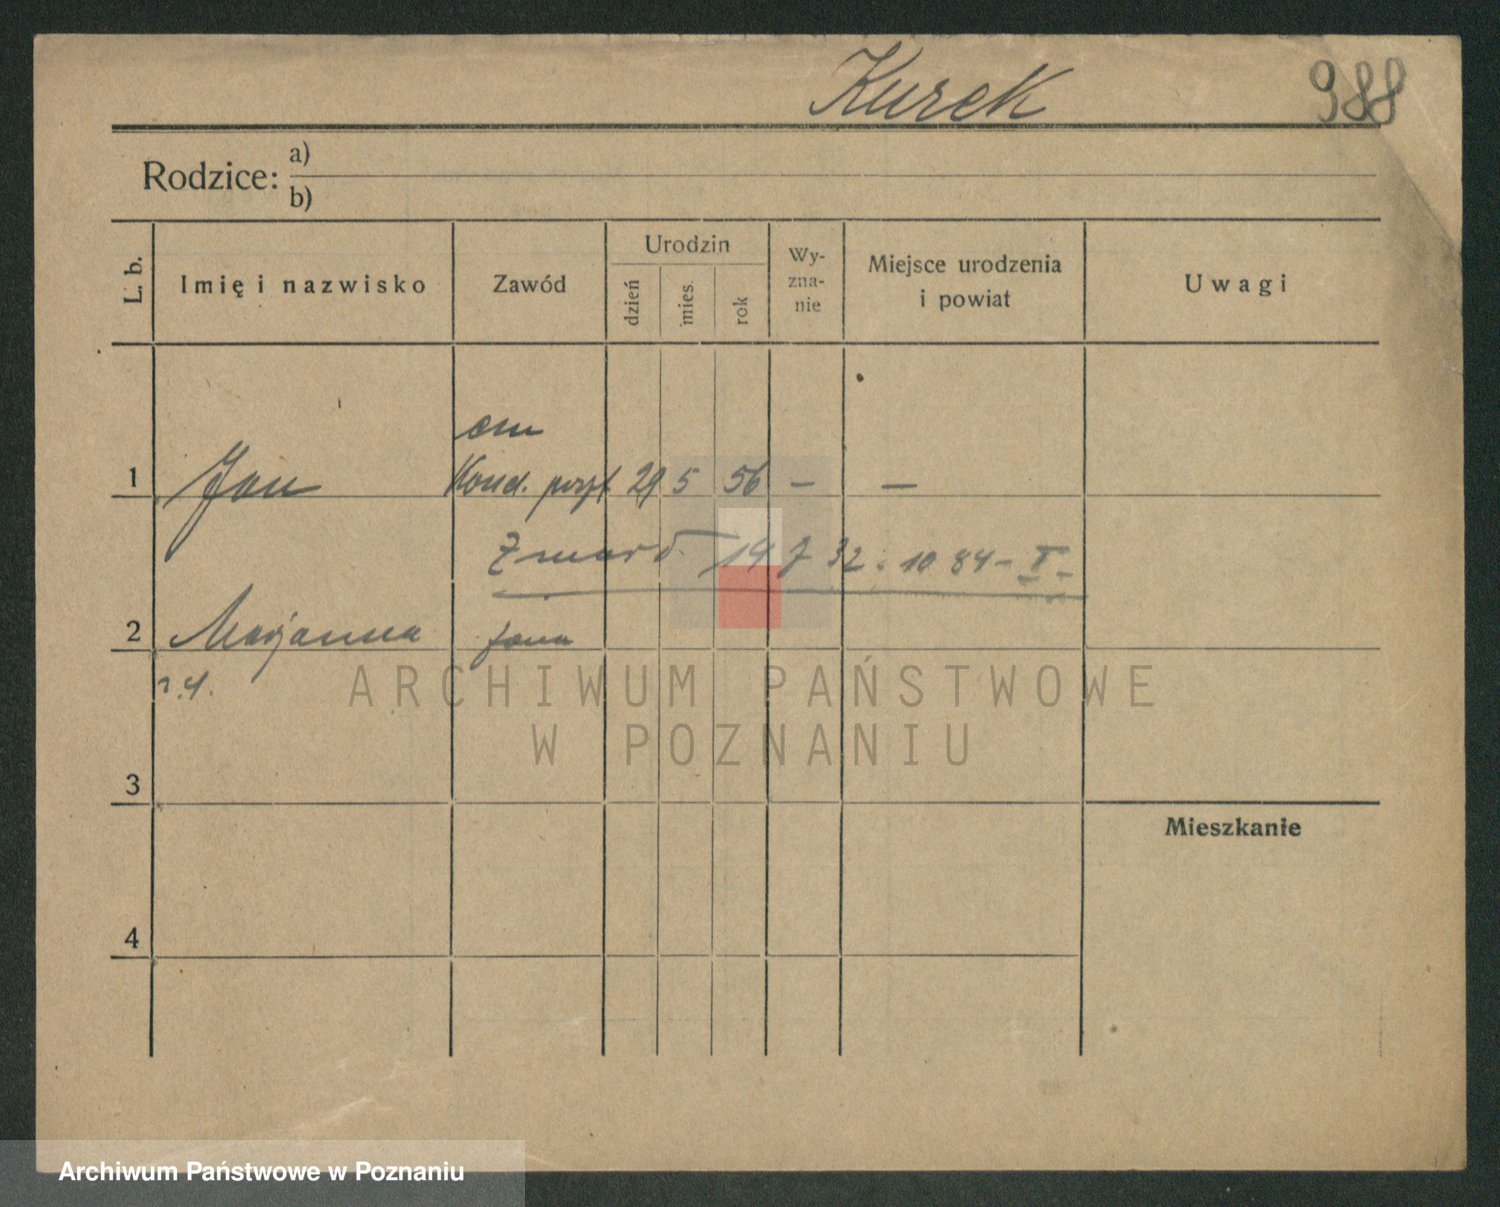 Kurek 988
Rodzice: a)
b)
L. b. Imię i nazwisko Zawód Urodzin dzień mies. rok Wy-zna-nie Miejsce urodzenia i powiat Uwagi
em
1 Jan Kond. 29 5 56 — —
Zmarł 14 7 32. 10 84 - X -
2 Marjanna żona
3
Mieszkanie
4
ARCHIWUM PAŃSTWOWE
W POZNANIU
Archiwum Państwowe w Poznaniu